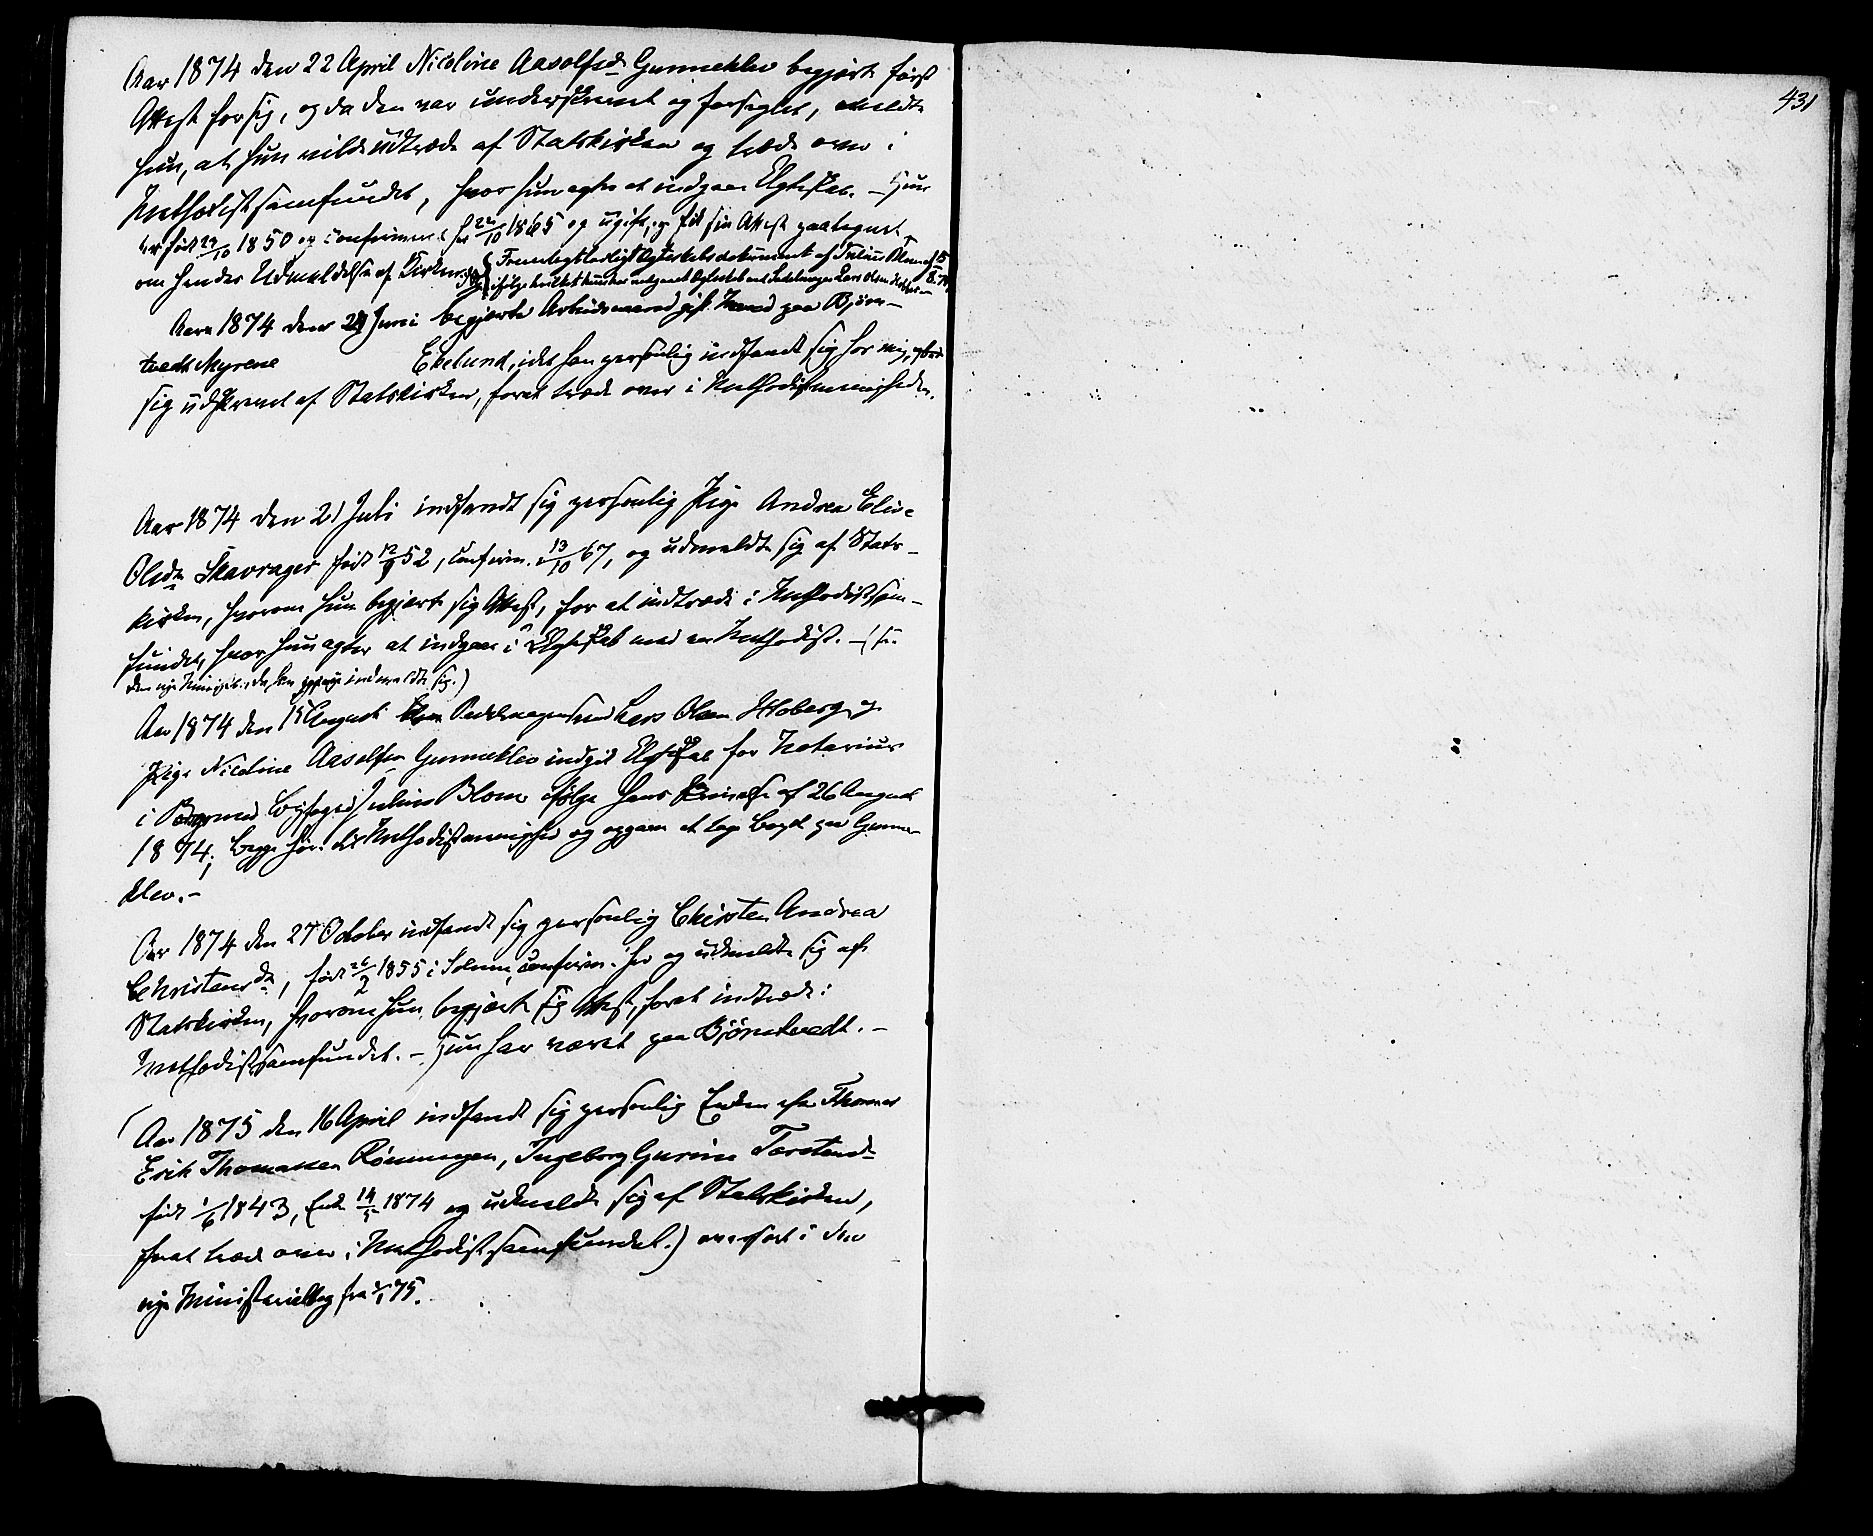 Aar 1874 den 22 April Nicoline Aasolfsd. Gunneklev begjærte først
Attest for sig, og da den var underskrevet og forseglet, meldte
hun, at hun vilde udtræde af Statskirken og træde over i
Methodistsamfundet, hvor hun agter at indgaa Ægteskab. – Hun
er født 29/10 1850 og confirmeret her 22/10 1865 og ugift, og fik sin Attest paategnet
om hendes Udmeldelse af Kirken. Fremlagt lovligt Ægteskabsdokument af Julius Blom af 15/8 74
ifølge hvilket hun har indgaaet Ægteskab med Lars Olsen
Aar 1874 den 24 Juni begjærte Arbeidsmand gift Mand paa Bjørn-
tvedt Myrene Ekelund, idet han personlig indfandt sig hos mig, og bad
sig udskrevet af Statskirken, for at træde over i Methodistmenigheden.
Aar 1874 den 21 Juli indfandt sig personlig Pige Andrea Elise
Olsdr. Skavrager født 12/9 52, confirm. 13/10 67, og udmeldte sig af Stats-
kirken, hvorom hun begjærte sig Attest, for at indtræde i Methodistsam-
fundet, hvor hun agter at indgaa i Ægteskab med en Methodist. – (se
den nye da hun indmeldte sig.)
Aar 1874 den 15 August Lars Olsen og
Pige Nicoline Aasolfsd. Gunneklev indgik Ægteskab for Notarius
i Byfoged Julius Blom ifølge hans af 26 August
1874; begge høre til Methodistmenighed og opgave at tage Bopæl paa Gunne-
klev. –
Aar 1874 den 27 October indfandt sig personlig Christen Andrea
Christensdr., født 26/2 1855 i Solum, confirm. her og udmeldte sig af
Statskirken, hvorom hun begjærte sig Attest, for at indtræde i
Methodistsamfundet. – Hun har været paa Bjørntvedt. –
(Aar 1875 den 16 April indfandt sig personlig Enken efter Thomas
Erik Thomassen Rønningen, Ingeborg Gurine Torstensd.
født 1/6 1843, Enke 14/5 1874 og udmeldte sig af Statskirken,
for at træde over i Methodistsamfundet.) overført i den
nye Ministerialbog fra 1/1 75.
431